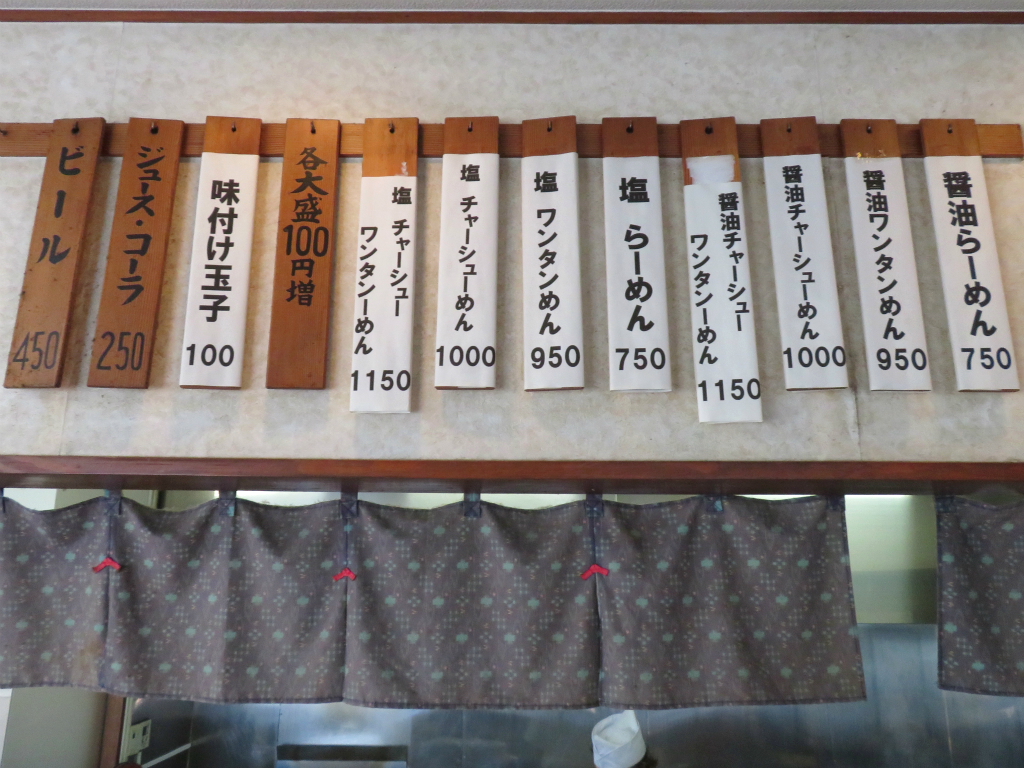 醤油らーめん
750
醤油ワンタンめん
950
醤油チャーシューめん
1000
醤油チャーシュー
ワンタンーめん
1150
塩 らーめん
750
塩 ワンタンめん
950
塩 チャーシューめん
1000
塩 チャーシュー
ワンタンーめん
1150
各大盛100円増
味付け玉子
100
ジュース・コーラ
250
ビール
450